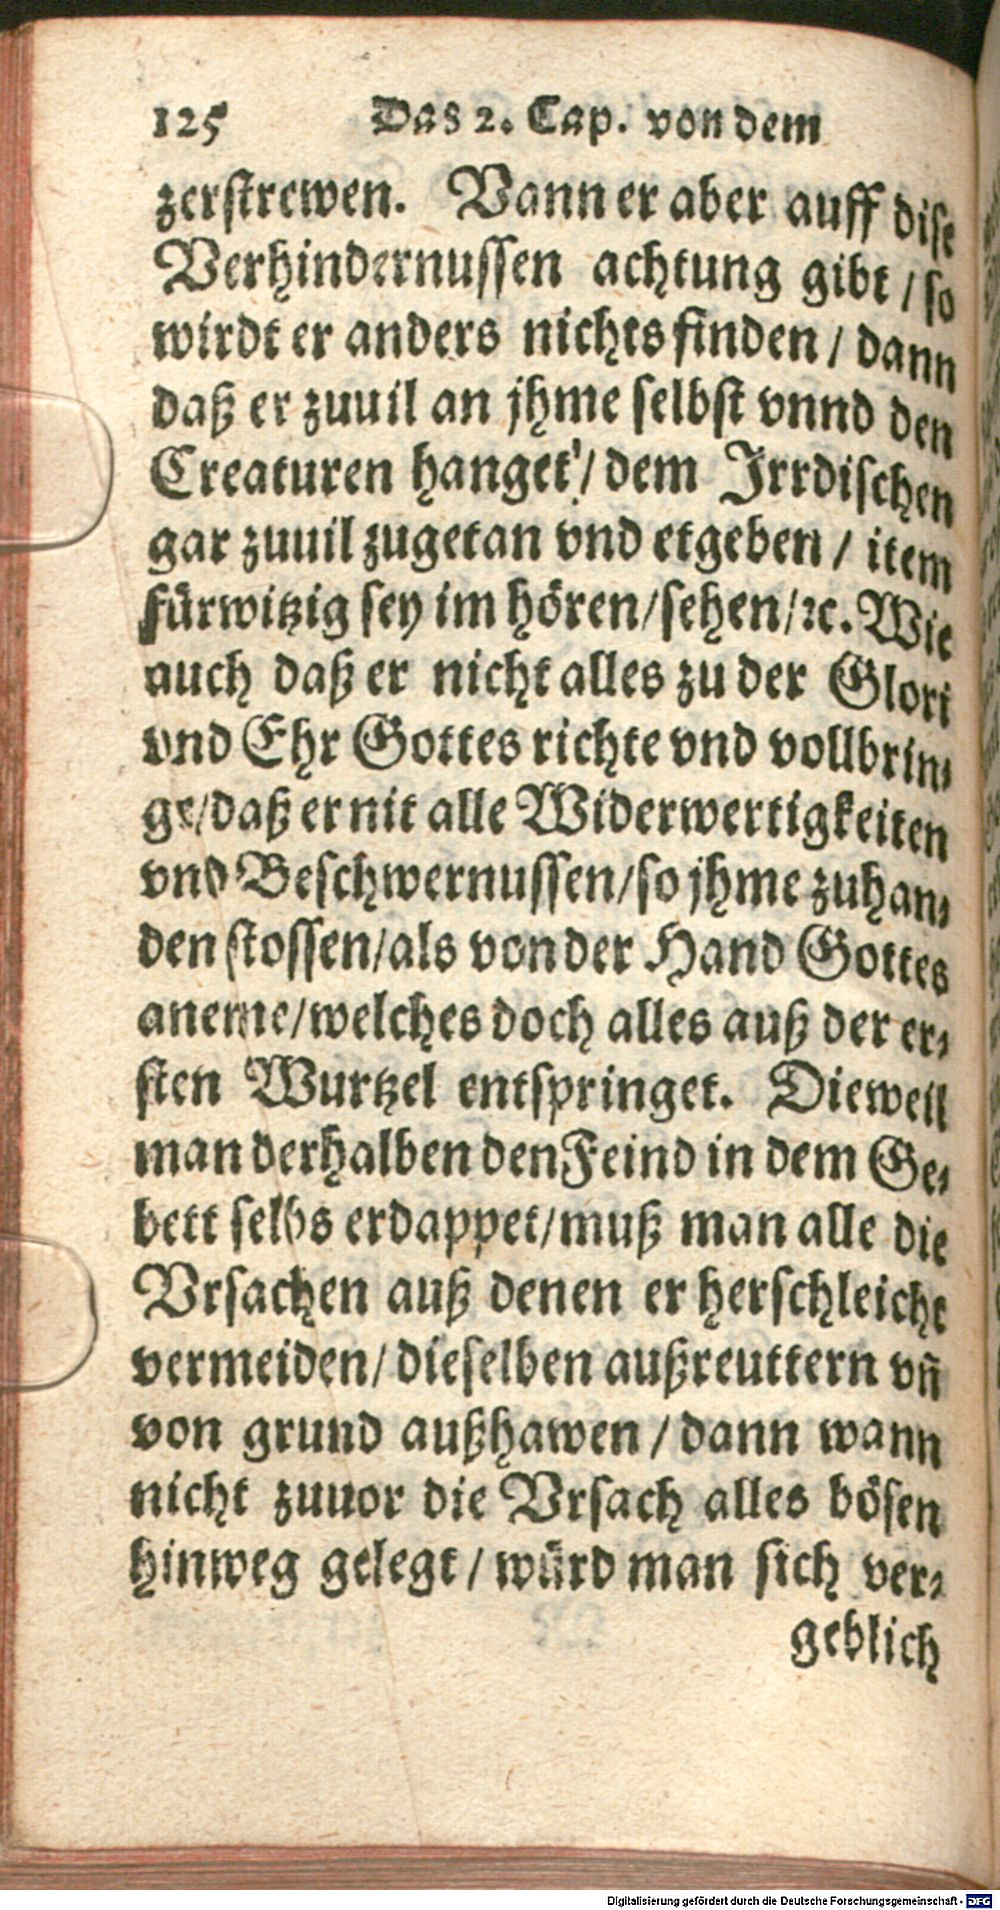 125 Das 2. Cap. von dem
zerstrewen. Vann er aber auff dise
Verhindernussen achtung gibt / so
wirdt er anders nichts finden / dann
daß er zuuil an jhme selbst vnnd den
Creaturen hanget / dem Jrrdischen
gar zuuil zugetan vnd etgeben / item
fürwitzig sey im hören / sehen / ꝛc. Wie
auch daß er nicht alles zu der Glori
vnd Ehr Gottes richte vnd vollbrin⸗
ge / daß er nit alle Widerwertigkeiten
vnd Beschwernussen / so jhme zuhan⸗
den stossen / als von der Hand Gottes
aneme / welches doch alles auß der er⸗
sten Wurtzel entspringet. Dieweil
man derhalben den Feind in dem Ge⸗
bett selbs erdappet / muß man alle die
Vrsachen auß denen er herschleicht
vermeiden / dieselben außreuttern vñ
von grund außhawen / dann wann
nicht zuuor die Vrsach alles bösen
hinweg gelegt / würd man sich ver⸗
geblich
Digitalisierung gefördert durch die Deutsche Forschungsgemeinschaft - DFG